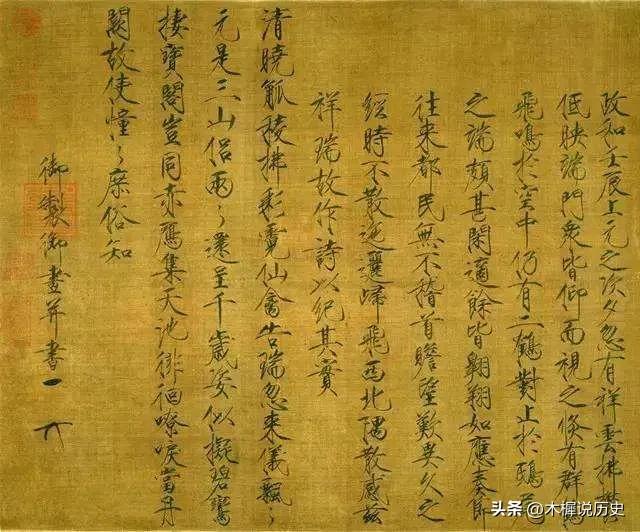 政和壬辰上元之次夕忽有祥雲拂鬱
低映端門眾皆仰而視之倐有群
飛鳴於空中仍有二鶴對止於鴟
之端頗甚閑適餘皆翱翔如應奏節
往來都民無不稽首瞻望歎異久之
經時不散迤邐歸飛西北隅散感茲
祥瑞故作詩以紀其實
清曉觚稜拂彩霓仙禽告瑞忽來儀飄〻
元是三山侶兩〻還呈千歲姿似擬碧鸞
棲寶閣豈同赤鴈集天池徘徊嘹唳當丹
闕故使憧〻庶俗知
御製御畫并書
头条 @木樨说历史